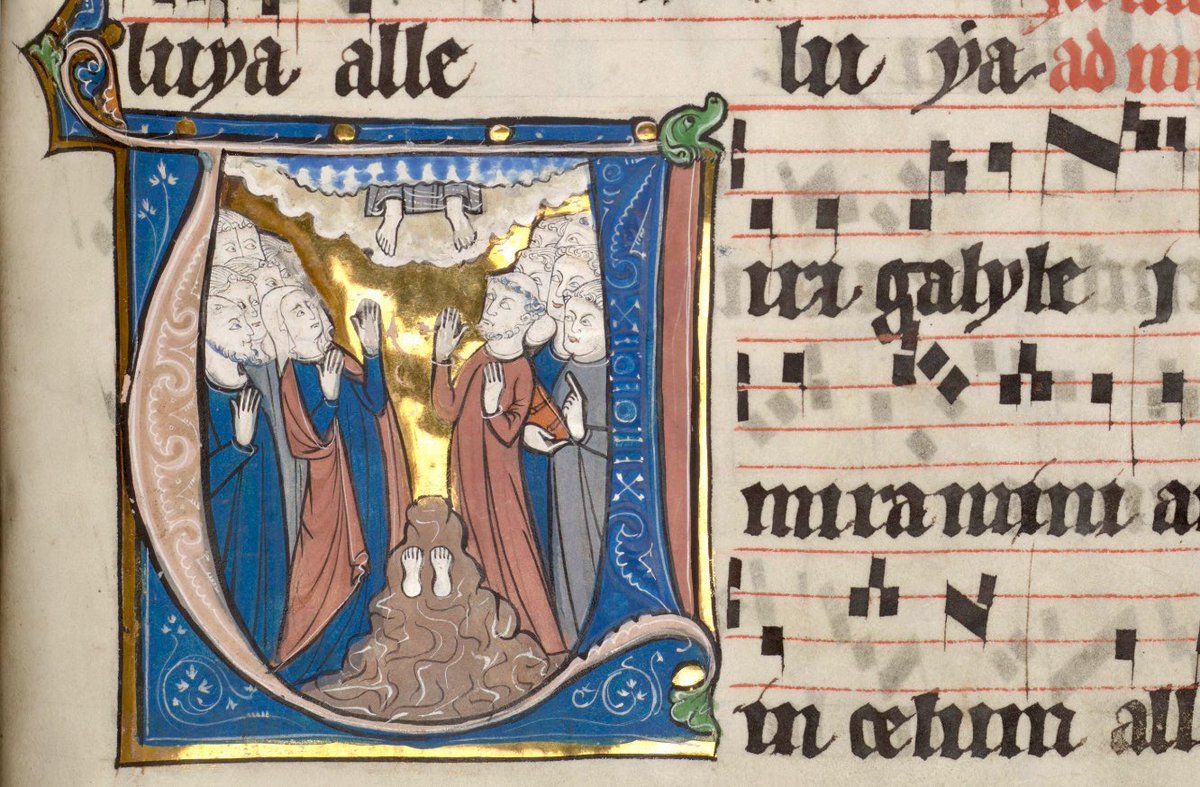 luya alle lu ẏa ad
iri galyle
miramini a
in celum all